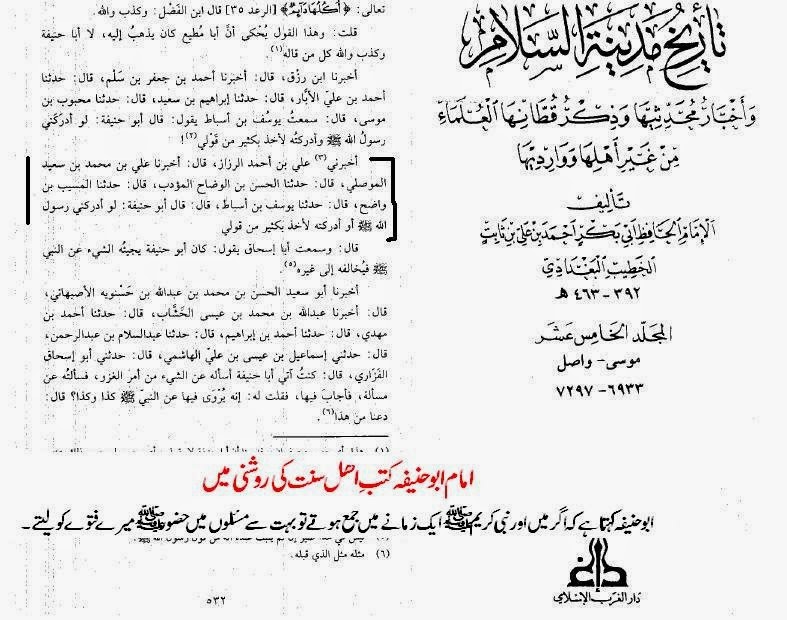 تاريخ مدينة السلام
وأخبار محدثيها وذكر قطانها العلماء
من غير أهلها ووارديها
تأليف
الإمام الحافظ أبي بكر أحمد بن علي بن ثابت
الخطيب البغدادي
٣٩٢ - ٤٦٣ هـ
المجلد الخامس عشر
موسى - واصل
٦٩٣٣ - ٧٢٩٧
تعالى: ﴿أُكُلُهَا دَآئِمٌ﴾ [الرعد ٣٥] قال ابن الفَضْل: وكذب والله.
قلت: وهذا القول يُحْكى أنَّ أبا مُطيع كان يذهبُ إليه، لا أبا حنيفة
وكذب والله كل من قاله(١).
أخبرنا ابن رزق، قال: أخبرنا أحمد بن جعفر بن سَلْم، قال: حدثنا
أحمد بن عليّ الأبَّار، قال: حدثنا إبراهيم بن سعيد، قال: حدثنا محبوب بن
موسى، قال: سمعتُ يوسُف بن أسباط يقول: قال أبو حنيفة: لو أدركَني
رسولُ الله ﷺ وأدركتُه لأخذ بكثير من قَوْلي(٢)!
أخبرني(٣) علي بن أحمد الرزاز، قال: أخبرنا علي بن محمد بن سعيد
الموصلي، قال: حدثنا الحسن بن الوضاح المؤدب، قال: حدثنا المسيب بن
واضح، قال: حدثنا يوسف بن أسباط، قال: قال أبو حنيفة: لو أدركني رسول
الله ﷺ أو أدركته لأخذ بكثير من قولي
قال: وسمعت أبا إسحاق يقول: كان أبو حنيفة يجيئُه الشيء عن النبي
ﷺ فيُخالفه إلى غيره(٥).
أخبرنا أبو سعيد الحسن بن محمد بن عبدالله بن حَسْنويه الأصبهاني،
قال: أخبرنا عبدالله بن محمد بن عيسى الخَشَّاب، قال: حدثنا أحمد بن
مهدي، قال: حدثنا أحمد بن إبراهيم، قال: حدثنا عبدالسلام بن عبدالرحمن،
قال: حدثني إسماعيل بن عيسى بن عليّ الهاشمي، قال: حدثني أبو إسحاق
الفَزَاري، قال: كنتُ آتي أبا حنيفة أسأله عن الشيء من أمر الغزو، فسألتُه عن
مسألة، فأجابَ فيها، فقلت له: إنه يُرْوَى فيها عن النبيِّ ﷺ كذا وكذا؟ قال:
دعنا من هذا(٦).
امام ابو حنیفہ کتب اہل سنت کی روشنی میں
ابو حنیفہ کہتا ہے کہ اگر میں اور نبی کریم ﷺ ایک زمانے میں جمع ہوتے تو بہت سے مسئلوں میں حضور ﷺ میرے فتوے کو لیتے۔
(٦) مثله مثل الذي قبله.
٥٣٢
دار الغرب الإسلامي